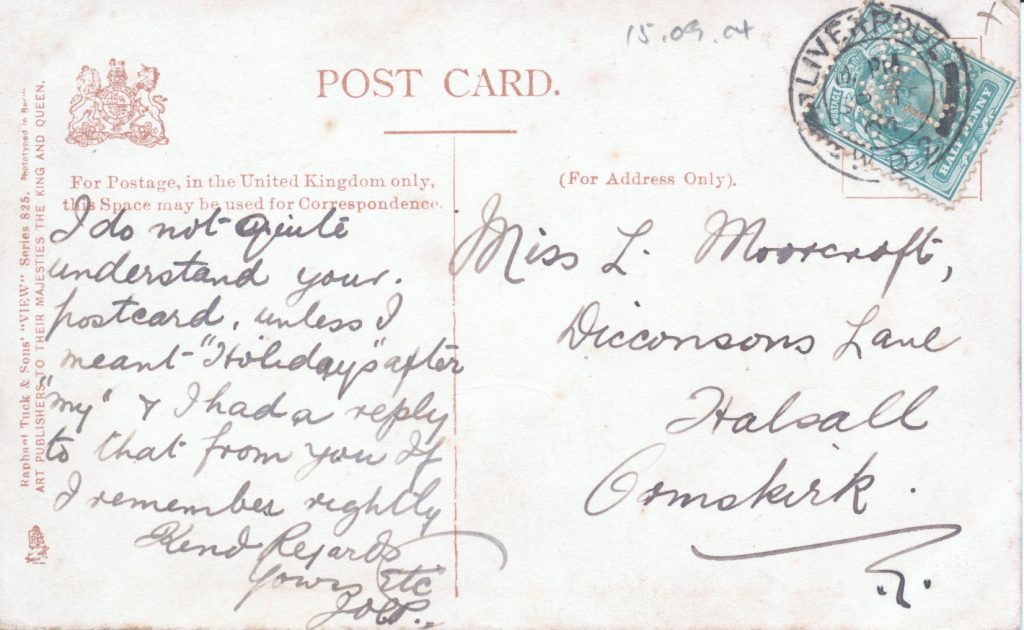 15.09.04
POST CARD.
LIVERPOOL
PM
POSTAGE
HALF PENNY
For Postage, in the United Kingdom only,
this Space may be used for Correspondence.
(For Address Only).
Raphael Tuck & Sons' "VIEW" Series 825.
ART PUBLISHERS TO THEIR MAJESTIES THE KING AND QUEEN.
I do not quite
understand your.
postcard, unless I
meant "Holidays" after
"my" & I had a reply
to that from you If
I remember rightly
Kind Regards
Yours Etc
Miss L. Moorcroft,
Dicconsons Lane
Halsall
Ormskirk.